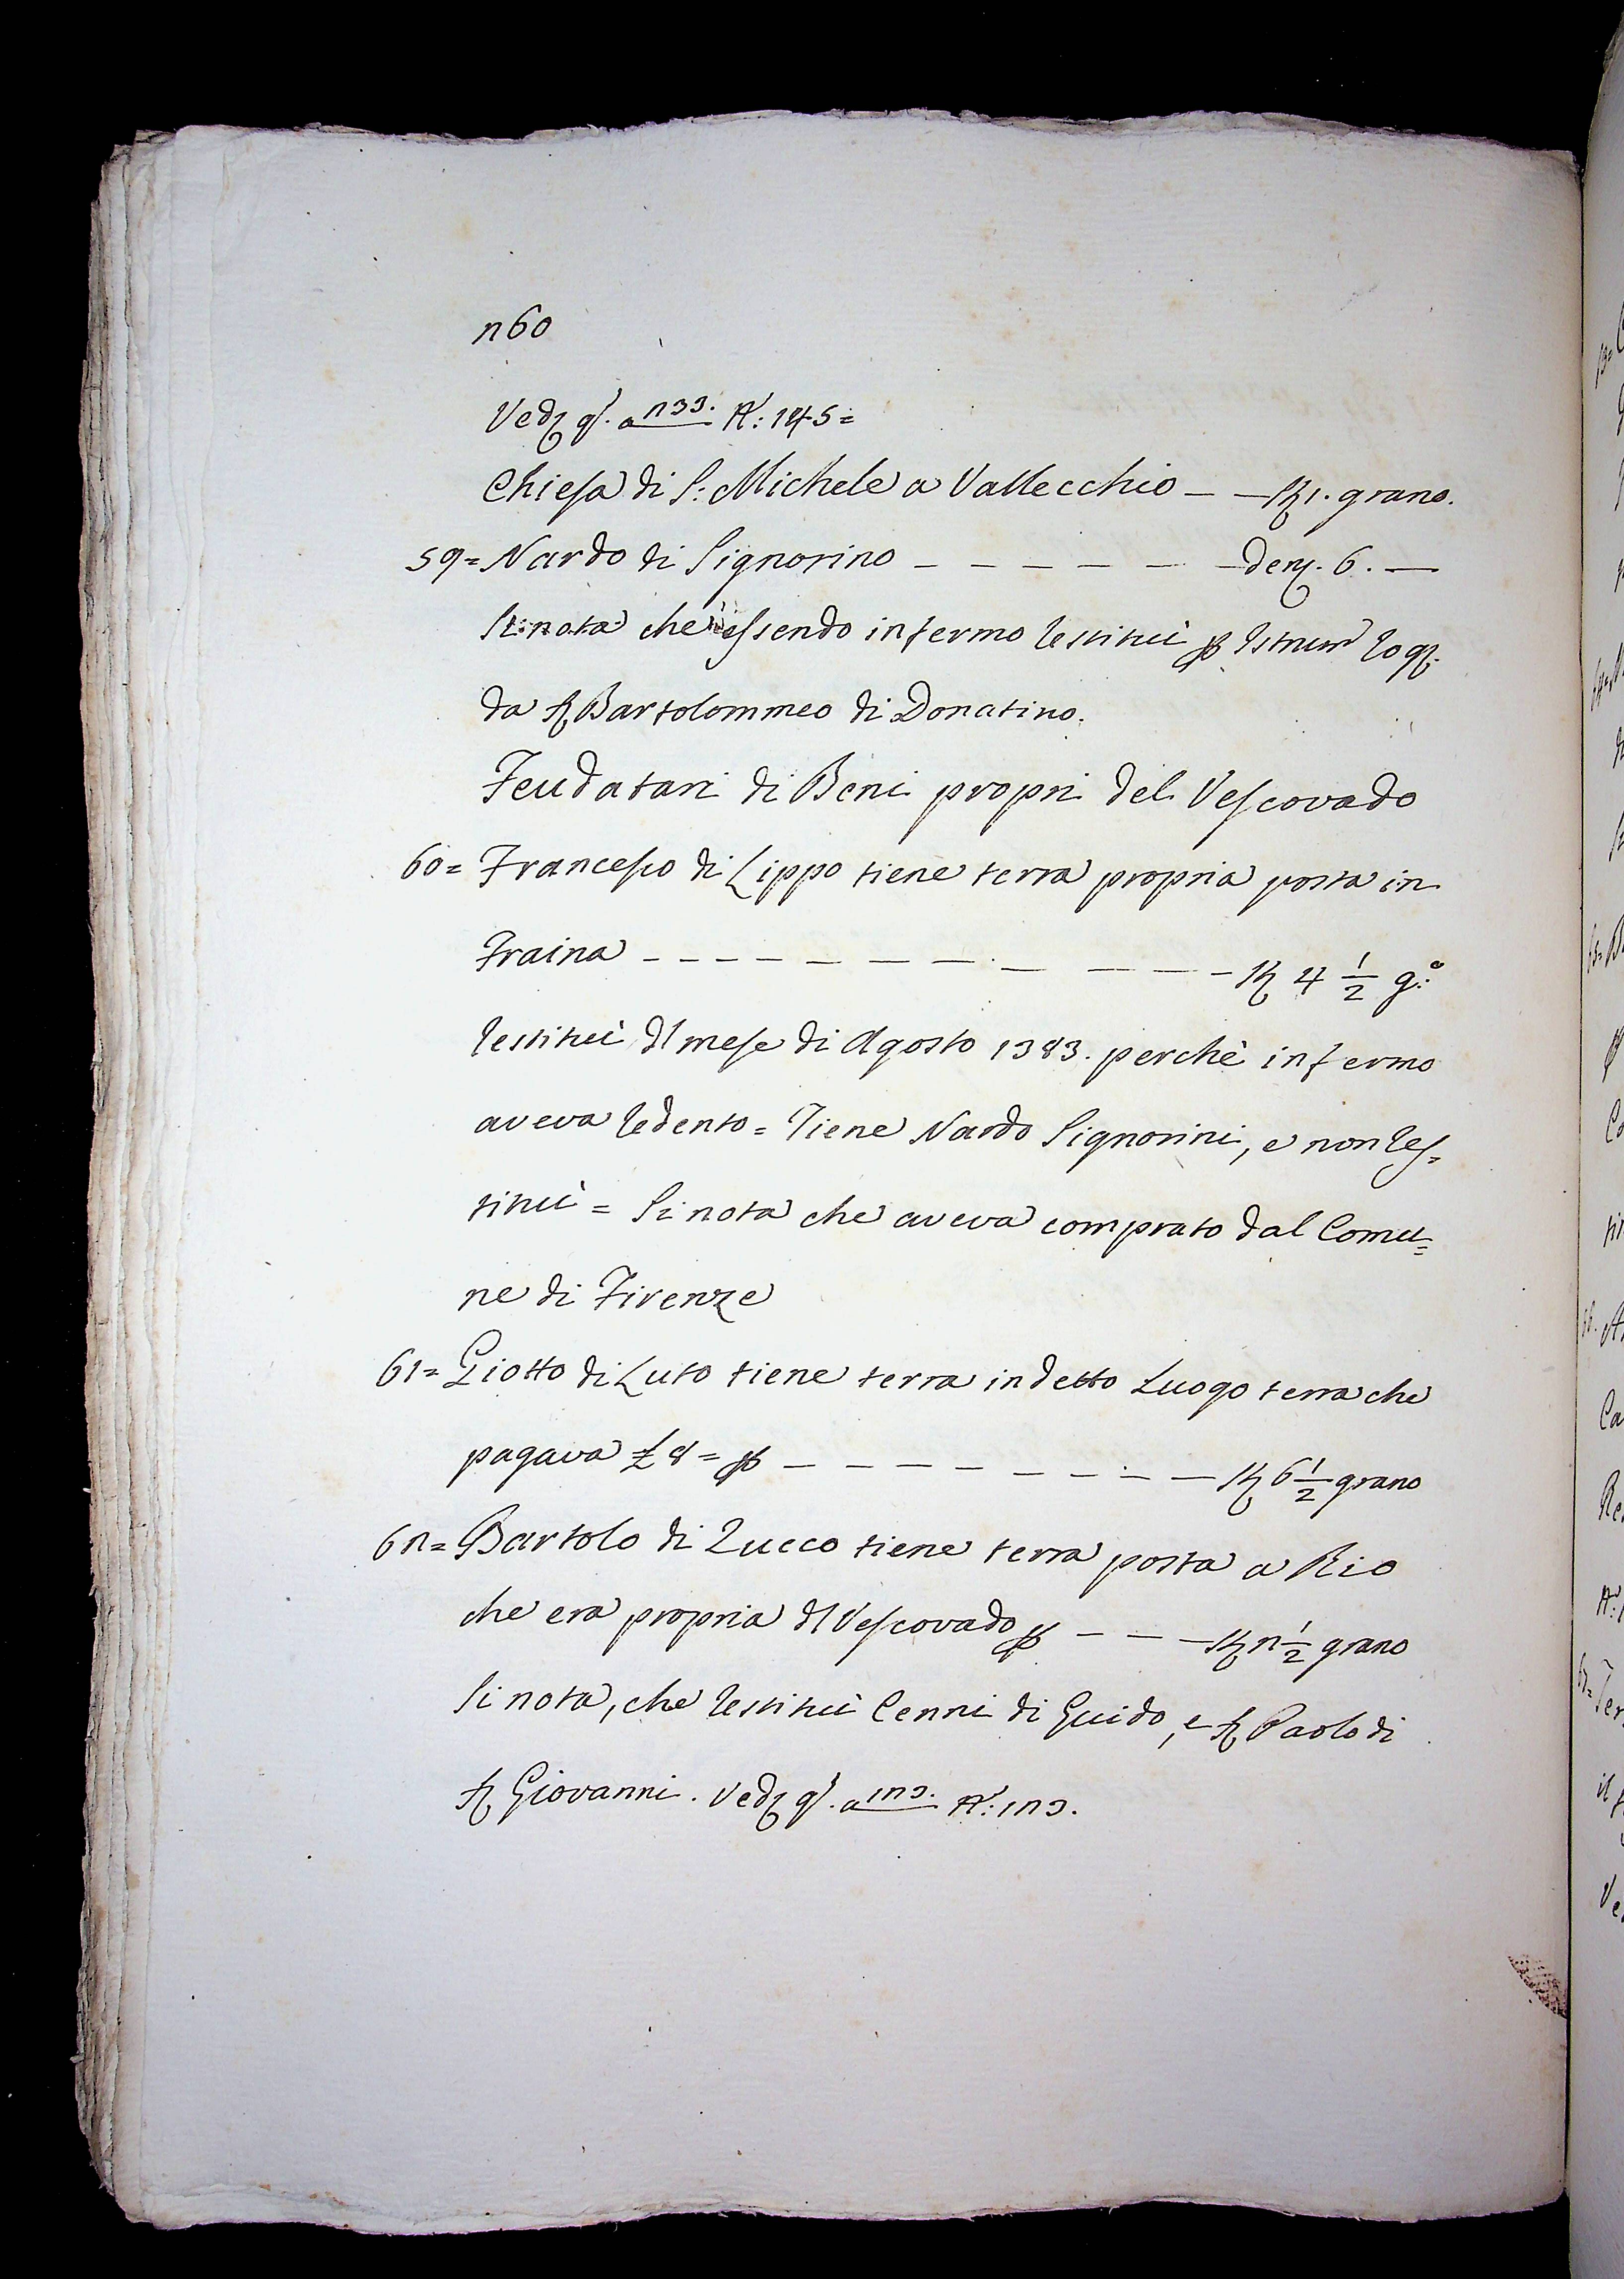 260
Ved. q. a 233. N: 145=
Chiesa di S: Michele a Vallecchio — — 1. grano.
59= Nardo di Signorino — — — — — — den. 6. —
Si nota che essendo infermo restituì p Istrum rog.
da Bartolommeo di Donatino.
Feudatari di Beni propri del Vescovado
60= Francesco di Lippo tiene terra propria posta in
Fraina — — — — — — — — — — — 4 1/2 g:o
restituì dl mese di Agosto 1383. perchè infermo
aveva redento= Tiene Nardo Signorini, e non res=
tituì = Si nota che aveva comprato dal Comu=
ne di Firenze
61= Giotto di Luto tiene terra in detto Luogo terra che
pagava £ 8= p — — — — — — — — 6 1/2 grano
62= Bartolo di Zucco tiene terra posta a Rio
che era propria dl Vescovado p — — — 2 1/2 grano
Si nota, che restituì Cenni di Guido, e Paolo di
Giovanni. Ved. q. a 123. N: 123.